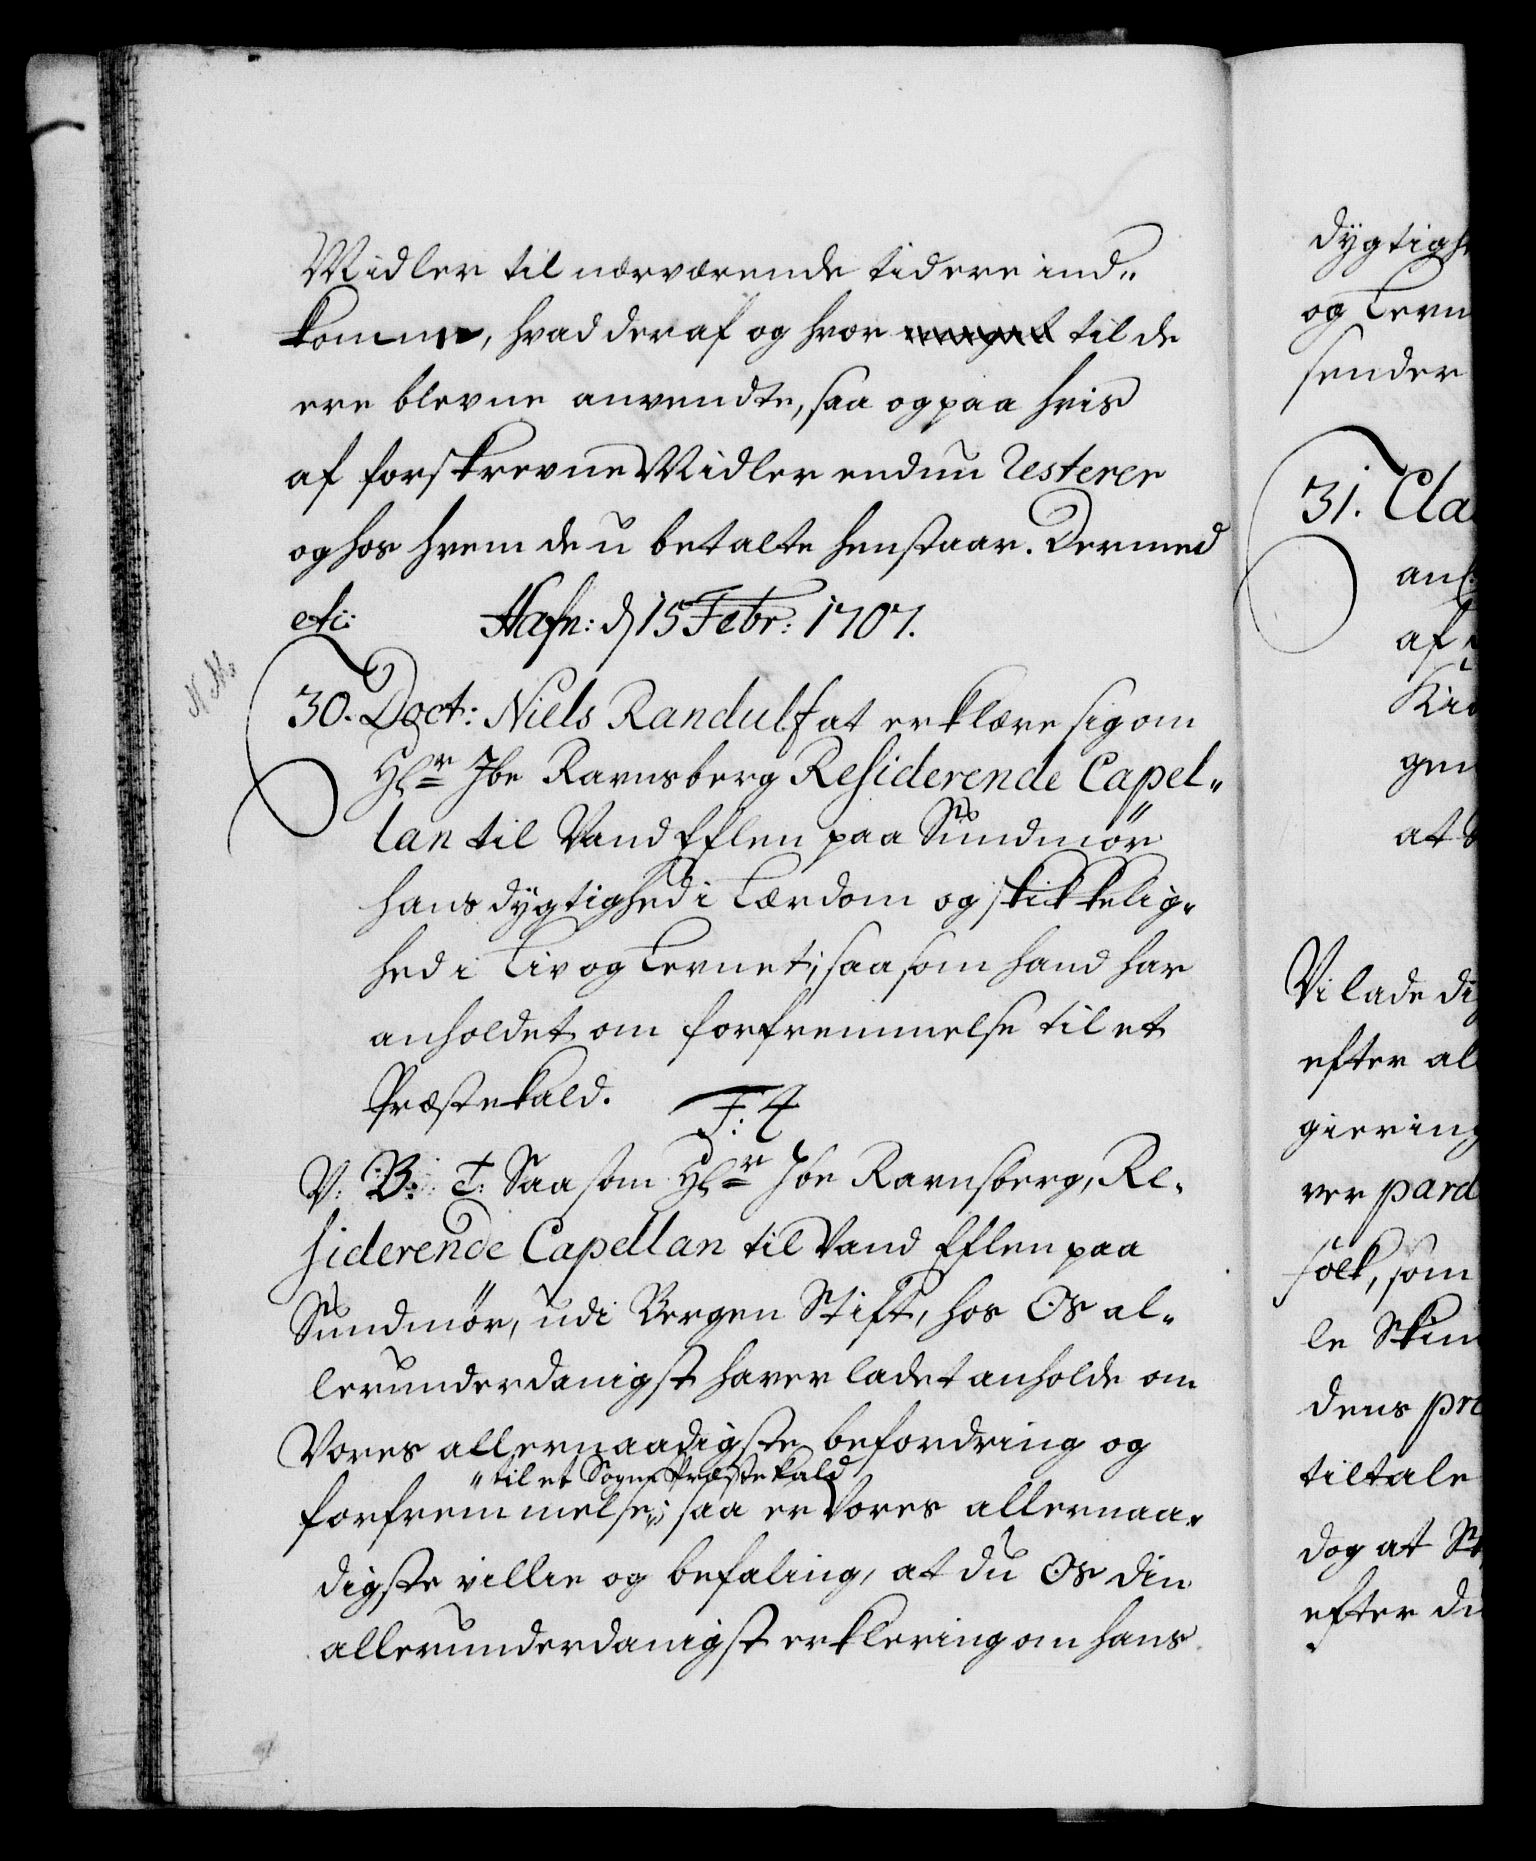 Midler til nærværende tid ere ind„
komne, hvad deraf og hvor til de
ere blevne anvendte, saa og paa hvis
af forskrevne Midler endnu Resterer
og hos hvem de u betalte henstaar. Dermed
etc: Hafn: d 15 Febr: 1707.
N. M.
30. Doct: Niels Randulf at erklære sig om
Hr Ibe Ravnsberg Residerende Capel„
lan til Vand Elflen paa Sundmør
hans dygtighed i Lærdom og skikkelig„
hed i Liv og Levnet; saasom hand har
anholdet om forfremmelse til et
Præstekald. F: 4
V: B: T: Saasom Hr Ibe Ravnsberg, Re„
siderende Capellan til Vand Elflen paa
Sundmør, udi Bergen Stift, hos Os al„
lerunderdanigst haver ladet anholde om
Vores allernaadigste befordring og
„til et Sogne Præstekald
forfremmelse; saa er Vores allernaa„
digste villie og befaling, at du Os din
allerunderdanigst erklering om hans
dygtigh
og Levn
sender
31. Cla
anl
af
Kir
gen
at
Vi lade di
efter al
giering
ver pard
folk, som
le Skin
dens pro
tiltale
dog at St
efter di